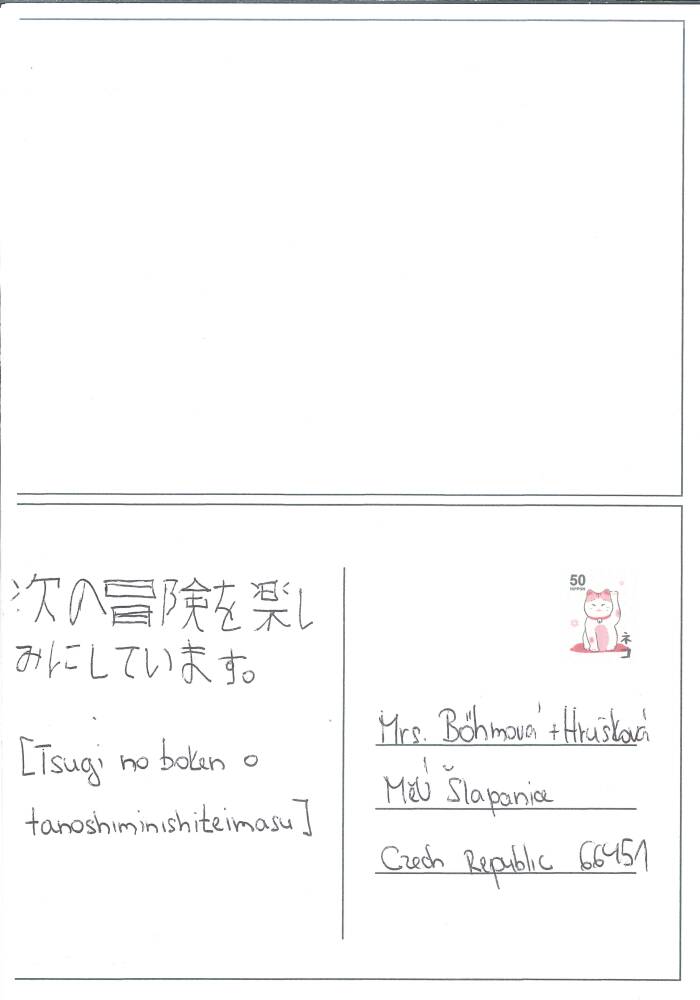 次の冒険を楽し
みにしています。
[Tsugi no boken o
tanoshiminishiteimasu]
50
NIPPON
ネコ
Mrs. Böhmová + Hrušková
MěÚ Šlapanice
Czech Republic 66451